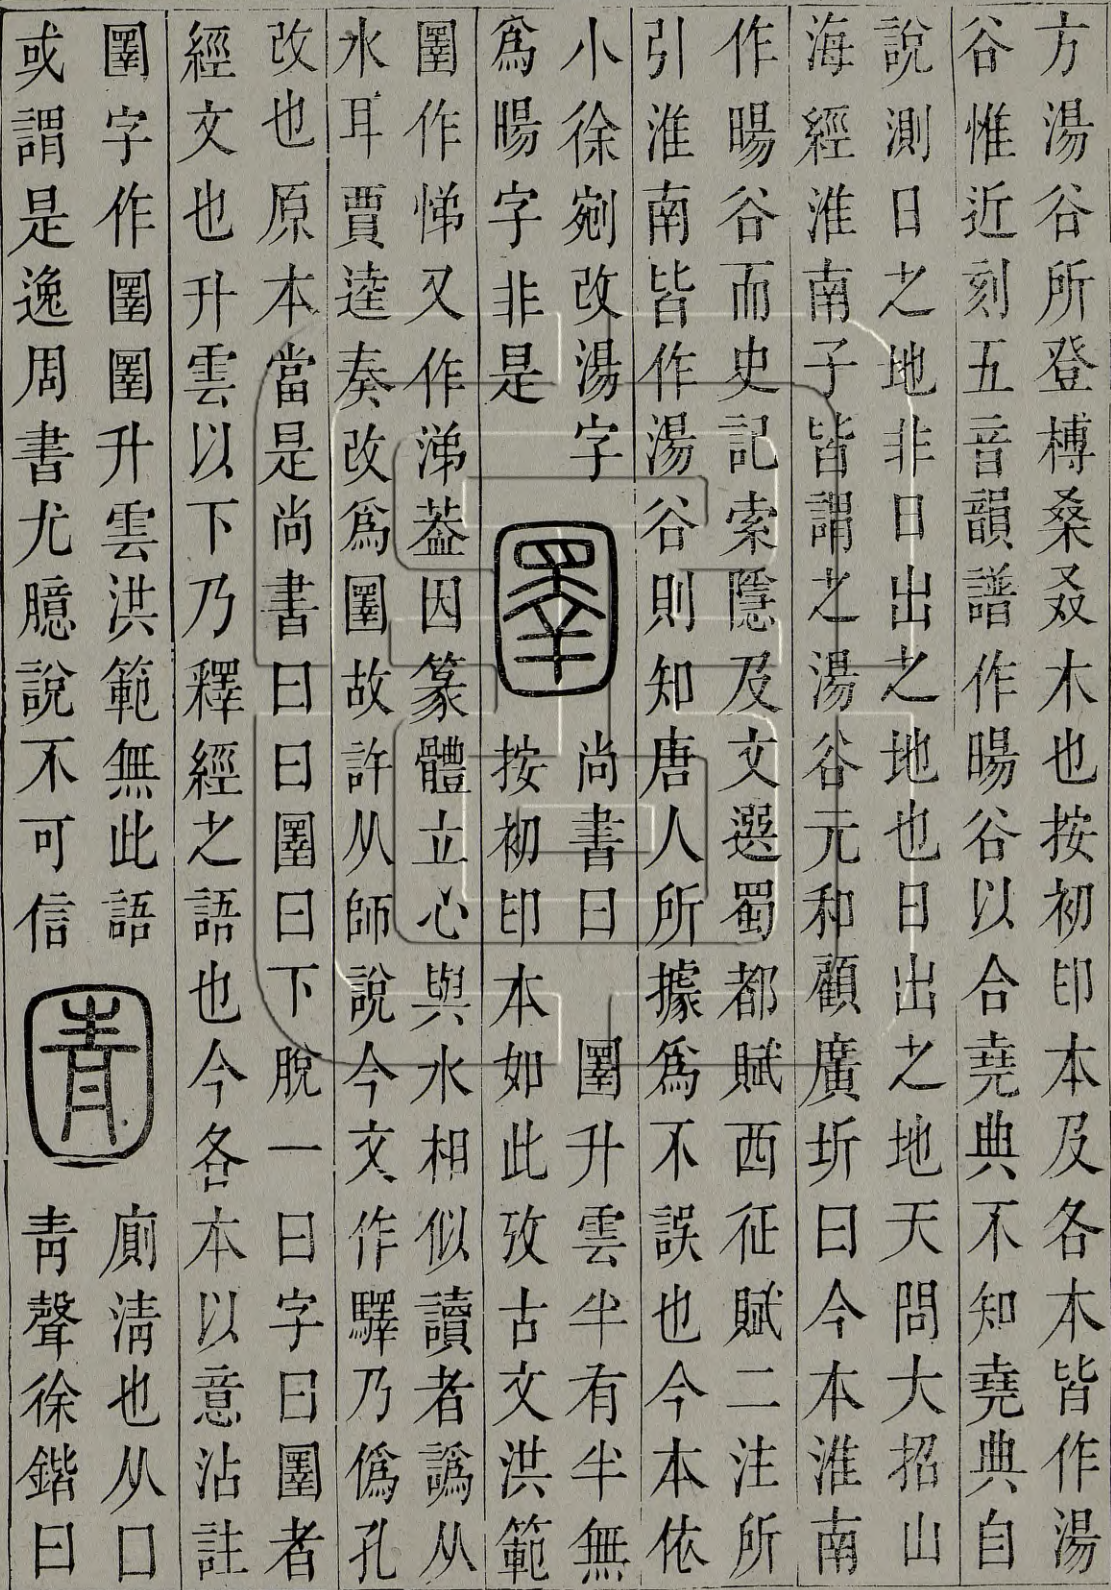 方湯谷所登榑桑叒木也按初印本及各本皆作湯
谷惟近刻五音韻譜作暘谷以合堯典不知堯典自
說測日之地非日出之地也日出之地天問大招山
海經淮南子皆謂之湯谷元和顧廣圻曰今本淮南
作暘谷而史記索隱及文選蜀都賦西征賦二注所
引淮南皆作湯谷則知唐人所據爲不誤也今本依
小徐剜改湯字
爲暘字非是
圛
尚書曰 圛升雲半有半無
按初印本如此攷古文洪範
圛作悌又作涕葢因篆體立心與水相似讀者譌从
水耳賈逵奏改爲圛故許从師說今文作驛乃僞孔
改也原本當是尚書曰曰圛曰下脫一曰字曰圛者
經文也升雲以下乃釋經之語也今各本以意沾註
圛字作圛圛升雲洪範無此語
或謂是逸周書尤臆說不可信
圊
廁清也从囗
靑聲徐鍇曰